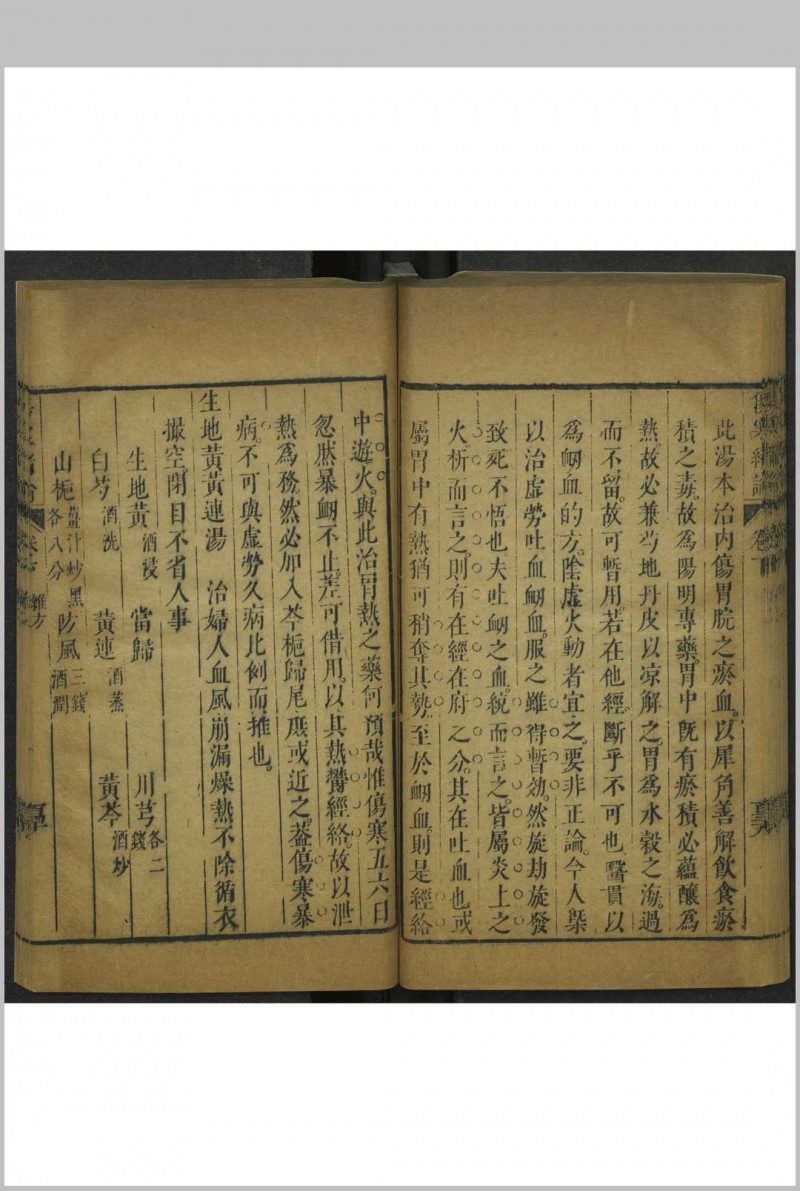 此湯本治內傷胃脘之瘀血。以犀角善解飲食瘀
積之毒。故爲陽明專藥。胃中旣有瘀積必蘊釀爲
熱。故必兼芍地丹皮以凉解之。胃爲水穀之海。過
而不留。故可暫用。若在他經。斷乎不可也。醫貫以
爲衂血的方。陰虛火動者宜之。要非正論。今人槩
以治虛勞吐血衂血。服之雖得暫効。然旋劫旋發
致死不悟也夫吐衂之血。統而言之。皆屬炎上之
火析而言之。則有在經在府之分。其在吐血也或
屬胃中有熱猶可稍奪其勢。至於衂血。則是經絡
中遊火。與此治胃熱之藥何預哉惟傷寒五六日
忽然暴衂不止。差可借用。以其熱鬱經絡。故以泄
熱爲務。然必加入芩梔歸尾庶或近之。葢傷寒暴
病。不可與虛勞久病比例而推也。
生地黃黃連湯 治婦人血風崩漏燥熱不除循衣
撮空。閉目不省人事
生地黃酒浸 當歸 川芎各二錢
白芍酒洗 黃連酒蒸 黃芩酒炒
山梔薑汁炒黑各八分 防風三錢酒潤
傷寒緒論 卷下
卷下 雜方